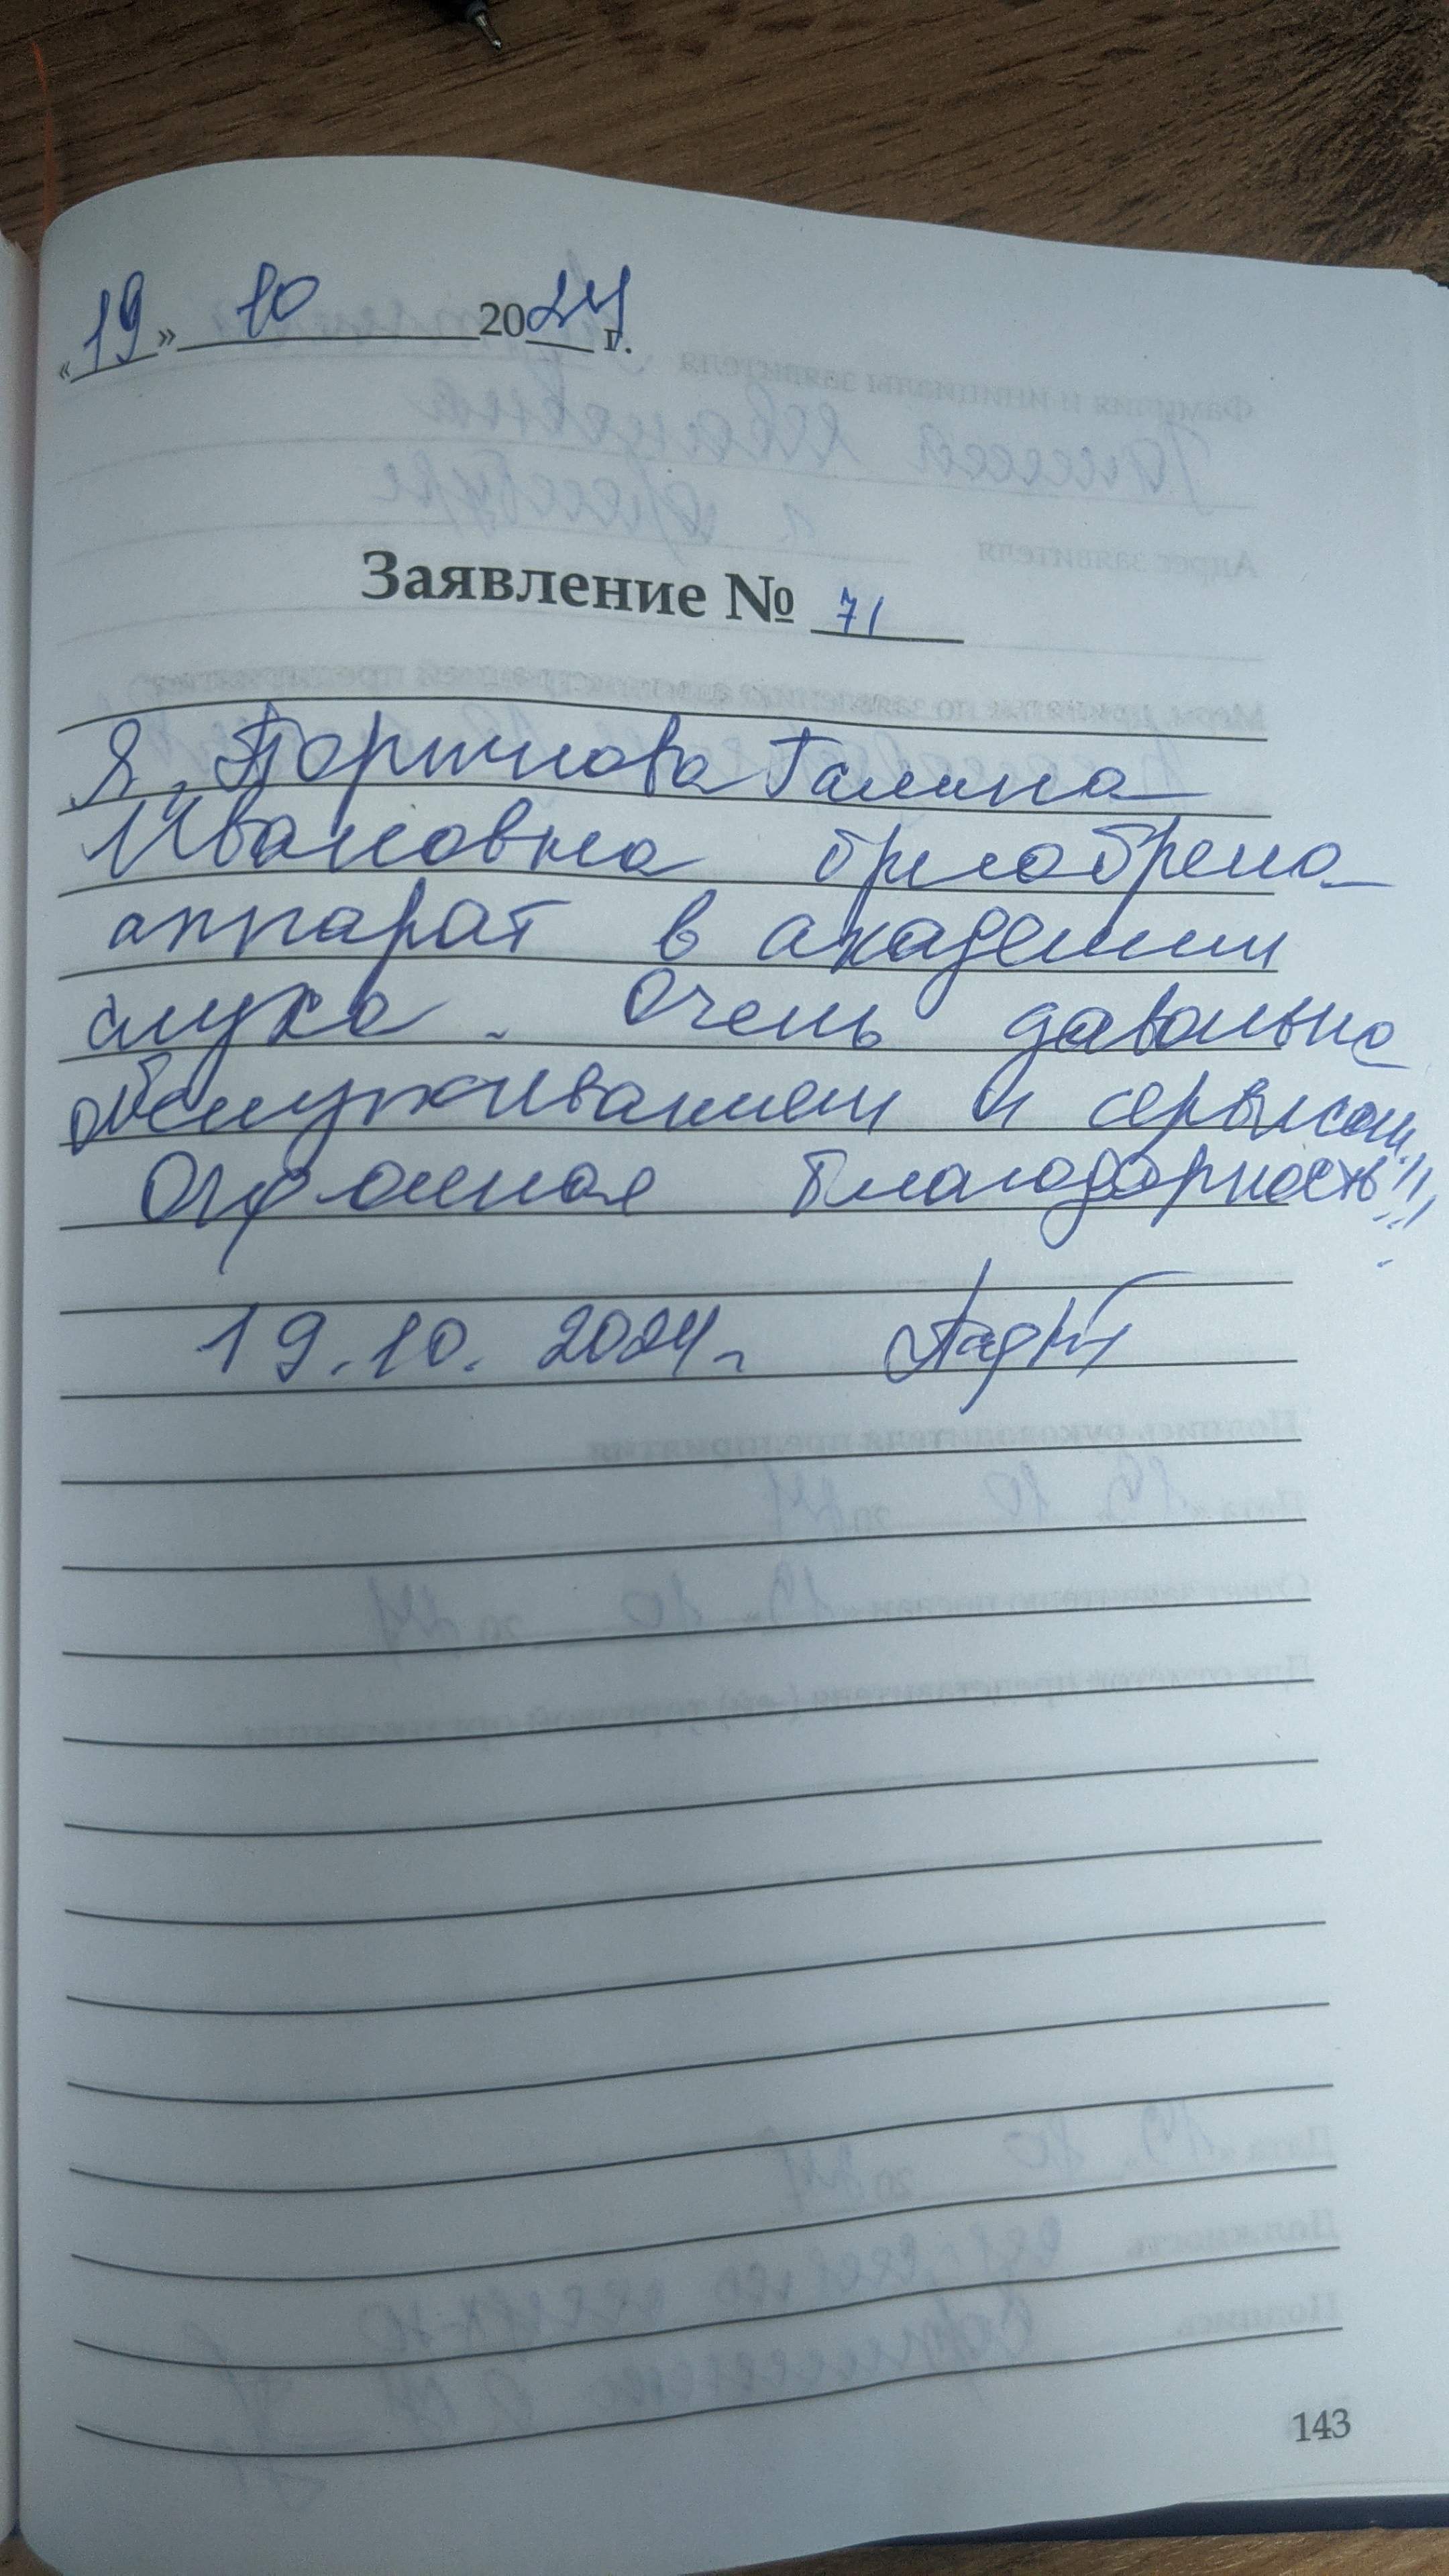 «19» 10 2024 г.
Заявление № 71
Я, Галина
Ивановна приобрела
аппарат в академии
слуха. Очень давольна
обслуживанием и сервисом.
Огромная благодарность!!!
19.10.2024г
143